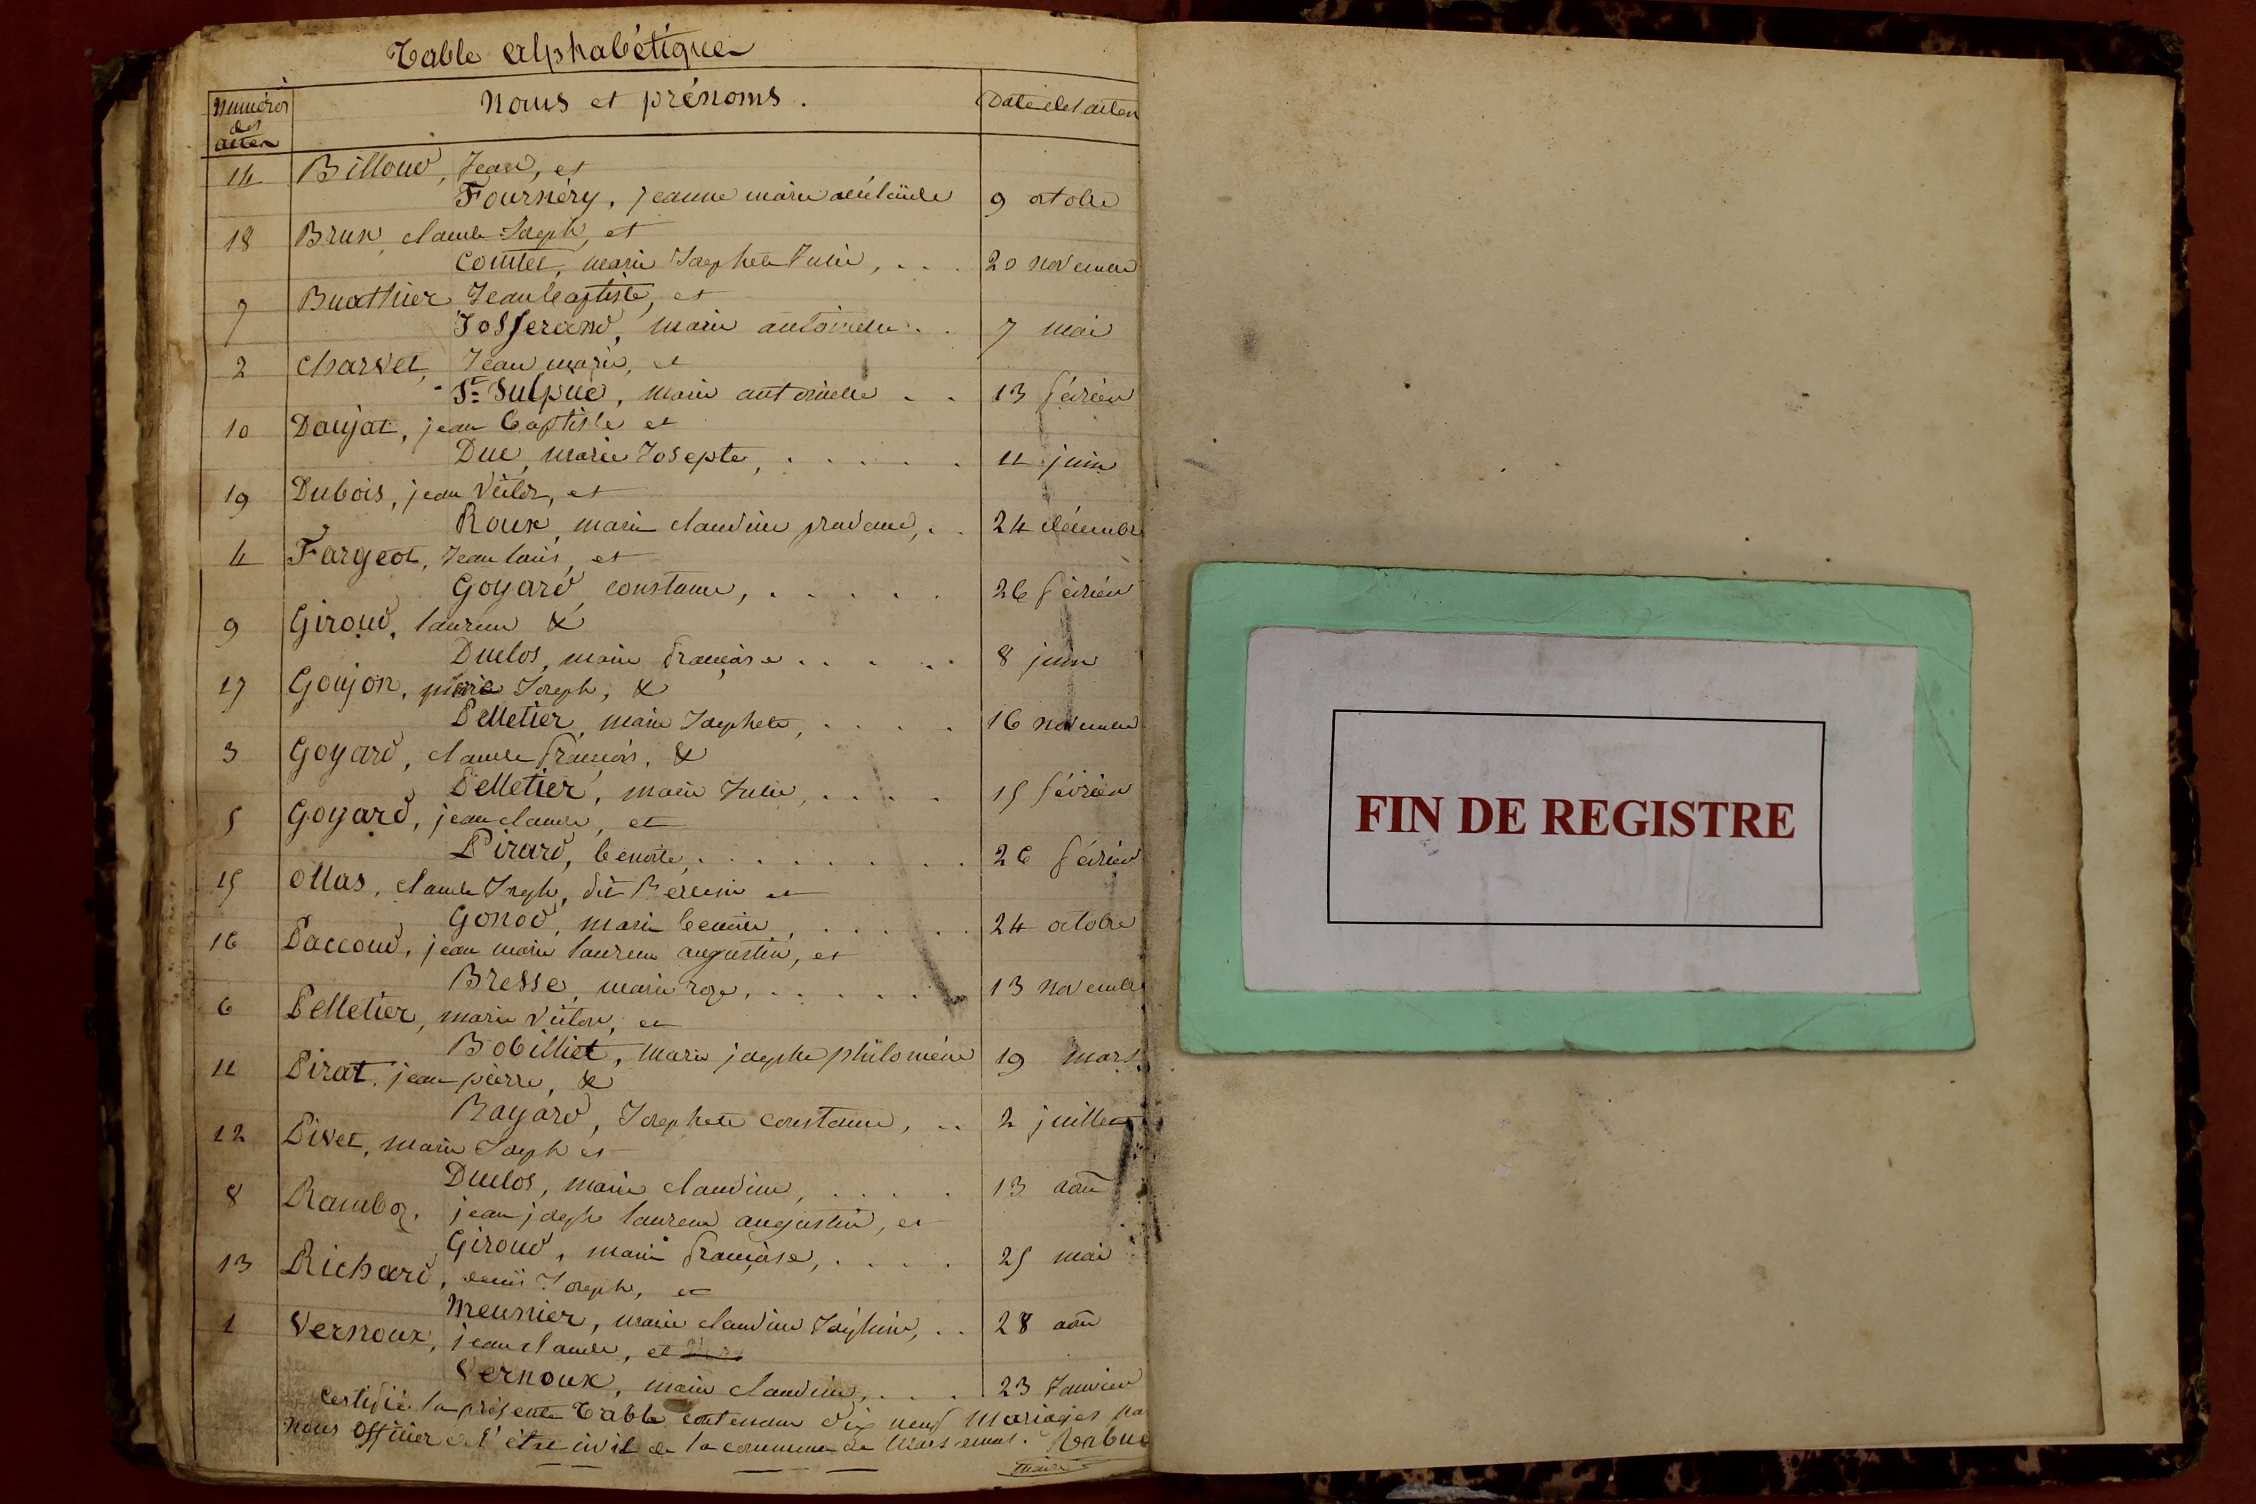 Table Alphabétique
Numéros des actes
Noms et prénoms.
Date des actes
14 Billoud, Jean, et
Fournéry, jeanne marie adélaïde 9 octobre
18 Brun, claude Joseph, et
Comtet, marie Josephete Julie, . . . 20 novembre
7 Buathier Jean baptiste, et
Josserand, marie antoinette . . 7 mai
2 Charvet, Jean marie, et
St Sulpice, marie antoinette . . 13 février
10 Daujat, jean baptiste et
Duc, marie Josepte, . . . . . 11 juin
19 Dubois, jean Victor, et
Roux, marie claudine prudence, . . 24 décembre
4 Fargeot, Jean louis, et
Goyard, constance, . . . . . 26 février
9 Giroud, laurent &
Duclos, marie françoise . . . . . 8 juin
17 Goujon, pierre Joseph, &
Pelletier, marie Josephete, . . . . 16 novembre
3 Goyard, claude françois, &
Pelletier, marie Julie, . . . . 15 février
5 Goyard, jean claude, et
Pirard, benoite, . . . . . . . . 26 février
15 Ollas, claude Joseph, dit et
Gonod, marie benoite, . . . . . . 24 octobre
16 Paccoud, jean marie laurent augustin, et
Bresse, marie rose, . . . . . . 13 novembre
6 Pelletier, marie Victor, et
Bobilliet, marie josephe philomène 19 mars
11 Pirat, jean pierre, &
Rayard, Josephete constance, . . 2 juillet
12 Pivet, marie Joseph et
Duclos, marie claudine, . . . . 13 août
8 Ramboz, jean joseph laurent augustin, et
Giroud, marie françoise, . . . . 25 mai
13 Richard, denis Joseph, et
Meunier, marie claudine Joséphine, . . 28 août
1 Vernoux, jean claude, et
Vernoux, marie claudine, . . . . 23 Janvier
Certifié la présente Table contenant dix neuf mariages par
nous officier de l'état civil de la commune de
maire
FIN DE REGISTRE